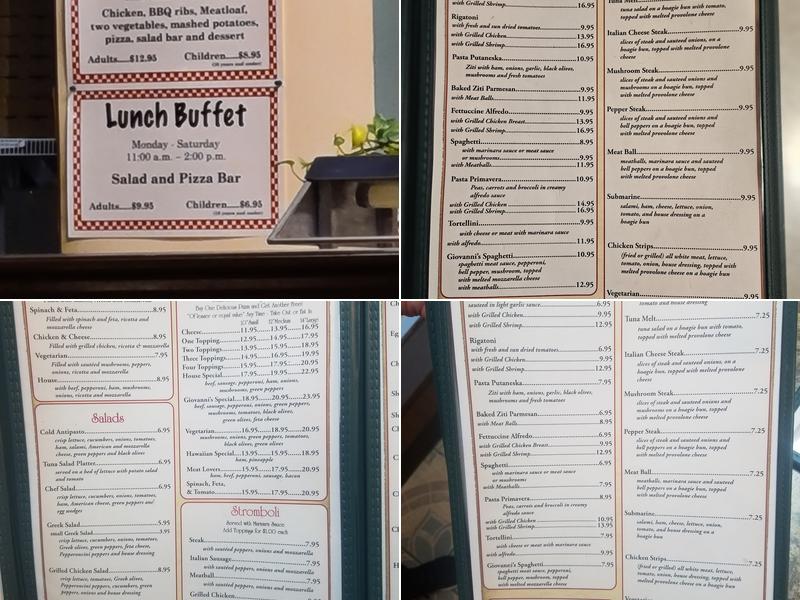 Chicken, BBQ ribs, Meatloaf,
two vegetables, mashed potatoes,
pizza, salad bar and dessert
Adults.....$12.95 Children.....$8.95
Lunch Buffet
Monday - Saturday
11:00 a.m. – 2:00 p.m.
Salad and Pizza Bar
Adults.....$9.95 Children.....$6.95
with Grilled Shrimp 16.95
Rigatoni
with fresh and sun dried tomatoes 9.95
with Grilled Chicken 13.95
with Grilled Shrimp 16.95
Pasta Putaneska 10.95
Ziti with ham, onions, garlic, black olives,
mushrooms and fresh tomatoes
Baked Ziti Parmesan 9.95
with Meat Balls 11.95
Fettuccine Alfredo 9.95
with Grilled Chicken Breast 13.95
with Grilled Shrimp 16.95
Spaghetti 8.95
with marinara sauce or meat sauce
or mushrooms 9.95
with Meatballs 11.95
Pasta Primavera 10.95
Peas, carrots and broccoli in creamy
alfredo sauce
with Grilled Chicken 14.95
with Grilled Shrimp 16.95
Tortellini 9.95
with cheese or meat with marinara sauce
with alfredo 11.95
Giovanni's Spaghetti 10.95
spaghetti meat sauce, pepperoni,
bell pepper, mushroom, topped
with melted mozzarella cheese
with meatballs 12.95
Tuna Melt
tuna salad on a hoagie bun with tomato,
topped with melted provolone
Italian Cheese Steak 9.95
slices of steak and sauteed onions, on a
hoagie bun, topped with melted provolone
cheese
Mushroom Steak 9.95
slices of steak and sauteed onions and
mushrooms on a hoagie bun, topped
with melted provolone cheese
Pepper Steak 9.95
slices of steak and sauteed onions and
bell peppers on a hoagie bun, topped
with melted provolone cheese
Meat Ball 9.95
meatballs, marinara sauce and sauteed
bell peppers on a hoagie bun, topped
with melted provolone cheese
Submarine 9.95
salami, ham, cheese, lettuce, onion,
tomato, and house dressing on a
hoagie bun
Chicken Strips 9.95
(fried or grilled) all white meat, lettuce,
tomato, onion, house dressing, topped with
melted provolone cheese on a hoagie bun
Vegetarian 9.95
Spinach & Feta 8.95
Filled with spinach and feta, ricotta and
mozzarella cheese
Chicken & Cheese 8.95
Filled with grilled chicken, ricotta & mozzarella
Vegetarian 7.95
Filled with sautéed mushrooms, peppers,
onions, ricotta and mozzarella
House 8.95
with beef, pepperoni, ham, mushrooms,
onions, ricotta and mozzarella
Salads
Cold Antipasto 6.95
crisp lettuce, cucumbers, onions, tomatoes,
ham, salami, American and mozzarella
cheese, green peppers and black olives
Tuna Salad Platter 6.95
served on a bed of lettuce with potato salad
and tomato
Chef Salad 6.95
crisp lettuce, cucumbers, onions, tomatoes,
ham, American cheese, green peppers and
egg wedges
Greek Salad 5.95
small Greek Salad 3.95
crisp lettuce, cucumbers, onions, tomatoes,
Greek olives, green peppers, feta cheese,
Pepperoncini peppers and house dressing
Grilled Chicken Salad 8.95
crisp lettuce, tomatoes, Greek olives,
Pepperoncini peppers, cucumbers, green
peppers, onions and house dressing
Buy One Delicious Pizza and Get Another Free!
"Of lesser or equal value" Any Time - Take Out or Eat In
10"Small 12"Medium 14"Large
Cheese 11.95 13.95 16.95
One Topping 12.95 14.95 17.95
Two Toppings 13.95 15.95 18.95
Three Toppings 14.95 16.95 19.95
Four Toppings 15.95 17.95 20.95
House Special 17.95 19.95 22.95
beef, sausage, pepperoni, ham, onions,
mushrooms, green peppers
Giovanni's Special 18.95 20.95 23.95
beef, sausage, pepperoni, onions, green peppers,
mushrooms, tomatoes, black olives,
green olives, feta cheese
Vegetarian 16.95 18.95 20.95
mushrooms, onions, green peppers, tomatoes,
black olives, green olives
Hawaiian Special 13.95 15.95 18.95
ham, pineapple
Meat Lovers 15.95 17.95 20.95
ham, beef, pepperoni, sausage, bacon
Spinach, Feta,
& Tomato 15.95 17.95 20.95
Stromboli
Served with Marinara Sauce
Add Toppings for $1.00 each
Steak 7.95
with sautéed peppers, onions and mozzarella
Italian Sausage 7.95
with sautéed peppers, onions and mozzarella
Meatball 7.95
with sautéed peppers, onions and mozzarella
Grilled Chicken 8.95
sauteed in light garlic sauce 6.95
with Grilled Chicken 9.95
with Grilled Shrimp 12.95
Rigatoni
with fresh and sun dried tomatoes 6.95
with Grilled Chicken 9.95
with Grilled Shrimp 12.95
Pasta Putaneska 7.95
Ziti with ham, onions, garlic, black olives,
mushrooms and fresh tomatoes
Baked Ziti Parmesan 6.95
with Meat Balls 8.95
Fettuccine Alfredo 6.95
with Grilled Chicken Breast 9.95
with Grilled Shrimp 12.95
Spaghetti 6.95
with marinara sauce or meat sauce
or mushrooms
with Meatballs 7.95
Pasta Primavera 8.95
Peas, carrots and broccoli in creamy
alfredo sauce
with Grilled Chicken 10.95
with Grilled Shrimp 13.95
Tortellini 7.95
with cheese or meat with marinara sauce
with alfredo 9.95
Giovanni's Spaghetti 7.95
spaghetti meat sauce, pepperoni,
bell pepper, mushroom, topped
with melted mozzarella cheese
tomato and house dressing
Tuna Melt 7.25
tuna salad on a hoagie bun with tomato,
topped with melted provolone
Italian Cheese Steak 7.25
slices of steak and sauteed onions, on a
hoagie bun topped with melted provolone
cheese
Mushroom Steak 7.25
slices of steak and sauteed onions and
mushrooms on a hoagie bun, topped
with melted provolone cheese
Pepper Steak 7.25
slices of steak and sauteed onions and
bell peppers on a hoagie bun, topped
with melted provolone cheese
Meat Ball 7.25
meatballs, marinara sauce and sauteed
bell peppers on a hoagie bun, topped
with melted provolone cheese
Submarine 7.25
salami, ham, cheese, lettuce, onion,
tomato, and house dressing on a
hoagie bun
Chicken Strips 7.25
(fried or grilled) all white meat, lettuce,
tomato, onion, house dressing, topped with
melted provolone cheese on a hoagie bun